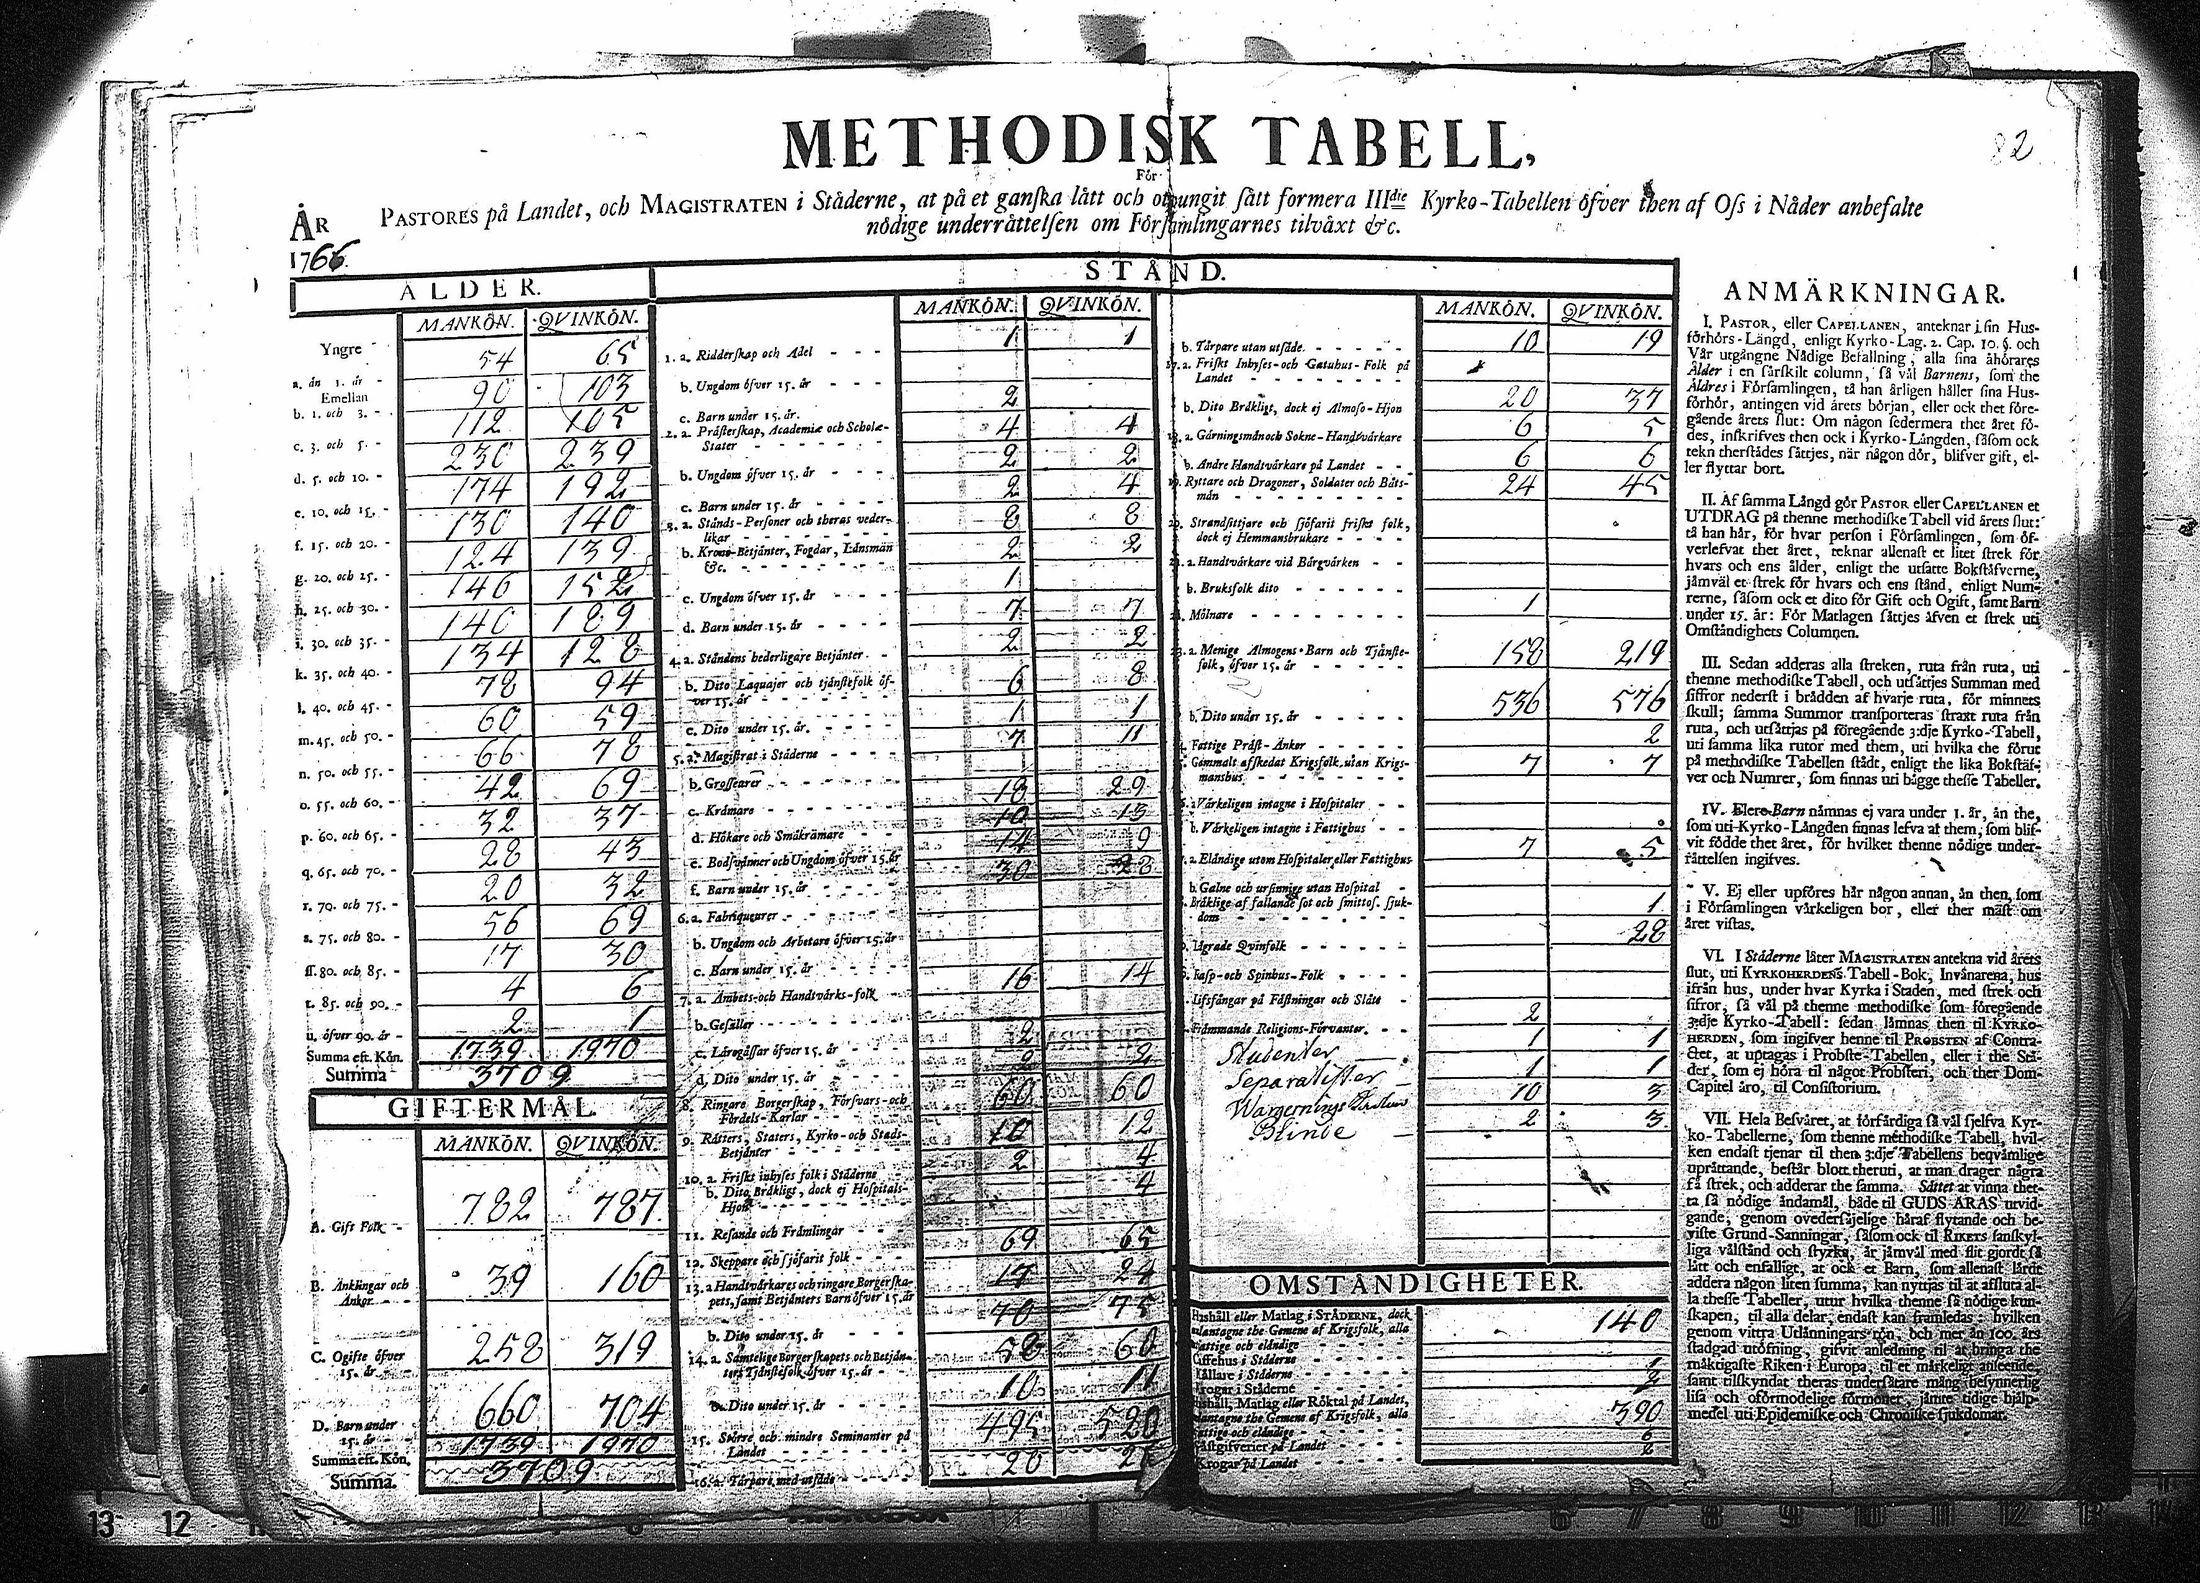 METHODISK TABELL,
För
PASTORES på Landet, och MAGISTRATEN i Ståderne, at på et ganska lått och otvungit sått formera IIIdie Kyrko-Tabellen öfver then af Oss i Nåder anbefalte
nödige underråttelsen om Församlingarnes tilvåxt &c.
82
ÅR
1766.
ÅLDER.
MANKÖN. QVINKÖN.
Yngre 54 65
a. ån 1. år - 90 103
Emellan
b. 1. och 3. - 112 105
c. 3. och 5. - 230 239
d. 5. och 10. - 174 192
e. 10. och 15. - 130 140
f. 15. och 20. - 124 139
g. 20. och 25. - 146 152
h. 25. och 30. - 140 189
i. 30. och 35. - 134 128
k. 35. och 40. - 78 94
l. 40. och 45. - 60 59
m. 45. och 50. - 66 78
n. 50. och 55. - 42 69
o. 55. och 60. - 32 37
p. 60. och 65. - 28 43
q. 65. och 70. - 20 32
r. 70. och 75. - 56 69
s. 75. och 80. - 17 30
ss. 80. och 85. - 4 6
t. 85. och 90. - 2 1
u. öfver 90. år -
Summa eft. Kön. 1739 1970
Summa 3709
GIFTERMÅL.
MANKÖN. QVINKÖN.
A. Gift Folk - 782 787
B. Änklingar och 39 160
Änkor - - -
C. Ogifte öfver 258 319
15. år - -
D. Barn under 660 704
15. år -
Summa eft. Kön. 1739 1970
Summa. 3709
STÅND.
MANKÖN. QVINKÖN.
1. a. Ridderskap och Adel - - - 1 1
b. Ungdom öfver 15. år - - - 2
c. Barn under 15. år.
2. a. Pråsterskap, Academiæ och Scholæ- 4 4
Stater - - -
b. Ungdom öfver 15. år - - - 2 2
c. Barn under 15. år - - - 2 4
3. a. Stånds-Personer och theras veder- 8 8
likar - - -
b. Krono-Betjånter, Fogdar, Lånsmån 2 2
&c. - - -
c. Ungdom öfver 15. år - - - 1
d. Barn under 15. år - - - 7 7
4. a. Ståndens hederligare Betjånter - 2 2
b. Dito Laquajer och tjånstefolk öf- 6 8
ver 15. år - - -
c. Dito under 15. år. - - - 1 1
5. a. Magistrat i Ståderne - - - 7 11
b. Grosserer - - -
c. Kråmare - - - 18 29
d. Hökare och Småkråmare - - - 10 13
e. Bodsvånner och Ungdom öfver 15. år 14 9
f. Barn under 15. år - - - 30 28
6. a. Fabriqueurer - - -
b. Ungdom och Arbetare öfver 15. år
c. Barn under 15. år - - -
7. a. Åmbets-och Handtvårks-folk 16 14
b. Gesåller - - -
c. Lårogåssar öfver 15. år - - 2
d. Dito under 15. år - - - 2 2
8. Ringare Borgerskap, Försvars-och 60 60
Fördels-Karlar - - -
9. Råtters, Staters, Kyrko-och Stads- 10 12
Betjånter - - -
10. a. Friskt inhyses folk i Ståderne 2 4
b. Dito Bråkligt, dock ej Hospitals- 4
Hjon - - -
11. Resande och Fråmlingar - - -
12. Skeppare och sjöfarit folk - - 69 65
13. a. Handtvårkares och ringare Borgerska- 17 24
pets, samt Betjånters Barn öfver 15. år
b. Dito under 15. år - - - 70 75
14. a. Samtelige Borgerskapets och Betjån- 58 60
ters Tjånstefolk öfver 15. år -
b. Dito under 15. år - - - 10 11
15. Större och mindre Hemmanter på 495 520
Landet - - -
16. a. Tårpare med utsåde - 20
MANKÖN. QVINKÖN.
b. Tårpare utan utsåde - - - 10 19
17. a. Friskt Inhyses-och Gatuhus-Folk på
Landet - - -
b. Dito Bråkligt, dock ej Almoso-Hjon 20 37
18. a. Gårningsmån och Sokne-Handtvårkare 6 5
b. Andre Handtvårkare på Landet - - 6 6
19. Ryttare och Dragoner, Soldater och Båts- 24 45
mån - - -
20. Strandsittjare och sjöfarit friskt folk,
dock ej Hemmansbrukare - - -
21. a. Handtvårkare vid Bårgvårken - -
b. Bruksfolk dito - - -
22. Mölnare - - - 1
23. a. Menige Almogens Barn och Tjånste- 158 219
folk, öfver 15. år - - -
b. Dito under 15. år - - - 536 576
Fattige Pråst-Änkor - - - 2
Gammalt afskedat Krigsfolk utan Krigs- 7 7
manshus - - -
a. Vårkeligen intagne i Hospitaler - -
b. Vårkeligen intagne i Fattighus - -
a. Elåndige utom Hospitaler eller Fattighus 7 5
b. Galne och ursinnige utan Hospital -
Bråklige af fallande sot och smittos. sjuk- 1
dom - - -
Lågrade Qvinfolk - - - 28
Rasp-och Spinhus-Folk - - -
Lifsfångar på Fåstningar och Slått -
Fråmmande Religions-Förvanter. - - 2
Studenter 1 1
Separatister 1 1
10 3
Blinde 2 3
OMSTÅNDIGHETER.
Hushåll eller Matlag i STÅDERNE, dock 140
undantagne the Gemene af Krigsfolk, alla
fattige och elåndige
Caffehus i Ståderne
Kållare i Ståderne 1
Krogar i Ståderne 2
Hushåll, Matlag eller Röktal på Landet, 390
undantagne the Gemene af Krigsfolk, alla
fattige och elåndige 6
Gåstgifverier på Landet 2
Krogar på Landet
ANMÄRKNINGAR.
I. PASTOR, eller CAPELLANEN, anteknar i sin Hus-
förhörs-Långd, enligt Kyrko-Lag. 2. Cap. 10. §. och
Vår utgångne Nådige Befallning, alla sina åhörares
Ålder i en sårskilt column, så vål Barnens, som the
Åldres i Församlingen, tå han årligen håller sina Hus-
förhör, antingen vid årets början, eller ock thet före-
gående årets slut: Om någon sedermera thet året fö-
des, inskrifves then ock i Kyrko-Långden, såsom ock
tekn therstådes såttjes, når någon dör, blifver gift, el-
ler flyttar bort.
II. Af samma Långd gör PASTOR eller CAPELLANEN et
UTDRAG på thenne methodiske Tabell vid årets slut:
tå han hår, för hvar person i Församlingen, som öf-
verlefvat thet året, teknar allenast et litet strek för
hvars och ens ålder, enligt the utsatte Bokståfverne,
jåmvål et strek för hvars och ens stånd, enligt Num-
rerne, såsom ock et dito för Gift och Ogift, samt Barn
under 15. år: För Matlagen såttjes åfven et strek uti
Omståndighets Columnen.
III. Sedan adderas alla streken, ruta från ruta, uti
thenne methodiske Tabell, och utsåttjes Summan med
siffror nederst i brådden af hvarje ruta, för minnets
skull; samma Summor transporteras straxt ruta från
ruta, och utsåttjas på föregående 3:dje Kyrko-Tabell,
uti samma lika rutor med them, uti hvilka the förut
på methodiske Tabellen stådt, enligt the lika Bokståf-
ver och Numrer, som finnas uti bågge thesse Tabeller.
IV. Flere Barn nåmnas ej vara under 1. år, ån the,
som uti Kyrko-Långden finnas lefva af them, som blif-
vit födde thet året, för hvilket thenne nödige under-
råttelsen ingifves.
V. Ej eller upföres hår någon annan, ån then, som
i Församlingen vårkeligen bor, eller ther måst om
året vistas.
VI. I Ståderne låter MAGISTRATEN antekna vid årets
slut, uti KYRKOHERDENS Tabell-Bok, Invånarena, hus
ifrån hus, under hvar Kyrka i Staden, med strek och
siffror, så vål på thenne methodiske som föregående
3:dje Kyrko-Tabell: sedan låmnas then til KYRKO-
HERDEN, som ingifver henne til PROBSTEN af Contra-
ctet, at uptagas i Probste-Tabellen, eller i the Stå-
der, som ej höra til något Probsteri, och ther Dom-
Capitel åro, til Consistorium.
VII. Hela Besvåret, at förfårdiga så vål sjelfva Kyr-
ko-Tabellerne, som thenne methodiske Tabell, hvil-
ken endast tjenar til then 3:dje Tabellens beqvåmlige
upråttande, består blott theruti, at man drager några
få strek, och adderar the samma. Såttet at vinna thet-
ta så nödige åndamål, både til GUDS ÅRAS utvid-
gande, genom ovedersåjelige håraf flytande och be-
viste Grund-Sanningar, såsom ock til RIKETS sanskyl-
liga vålstånd och styrka, år jåmvål med flit gjordt så
lått och enfalligt, at ock et Barn, som allenast lårdt
addera någon liten summa, kan nyttjas til at afsluta al-
la thesse Tabeller, utur hvilka thenne så nödige kun-
skapen, til alla delar, endast kan framledas: hvilken
genom vittra Utlånningars rön, och mer ån 100. års
stadgad utöfning, gifvit anledning til at bringa the
måktigaste Riken i Europa, til et mårkeligt anseende,
samt tilskyndat theras undersåtare mång besynnerlig
lisa och oförmodelige förmoner, jåmte tidige hjålp-
medel uti Epidemiske och Chroniske sjukdomar.
13 12
6 7 8 9 10 11 12 13